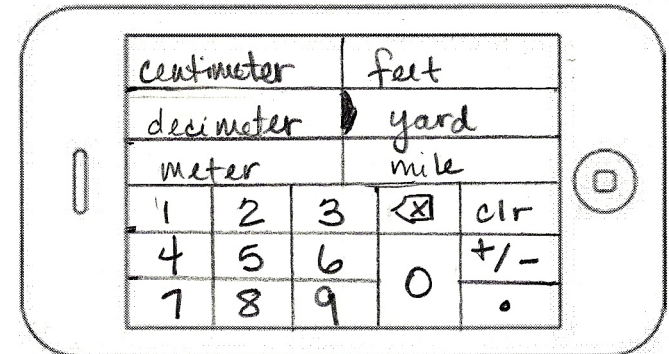 centimeter feet
decimeter yard
meter mile
1 2 3 ⌫ clr
4 5 6 0 +/-
7 8 9 .